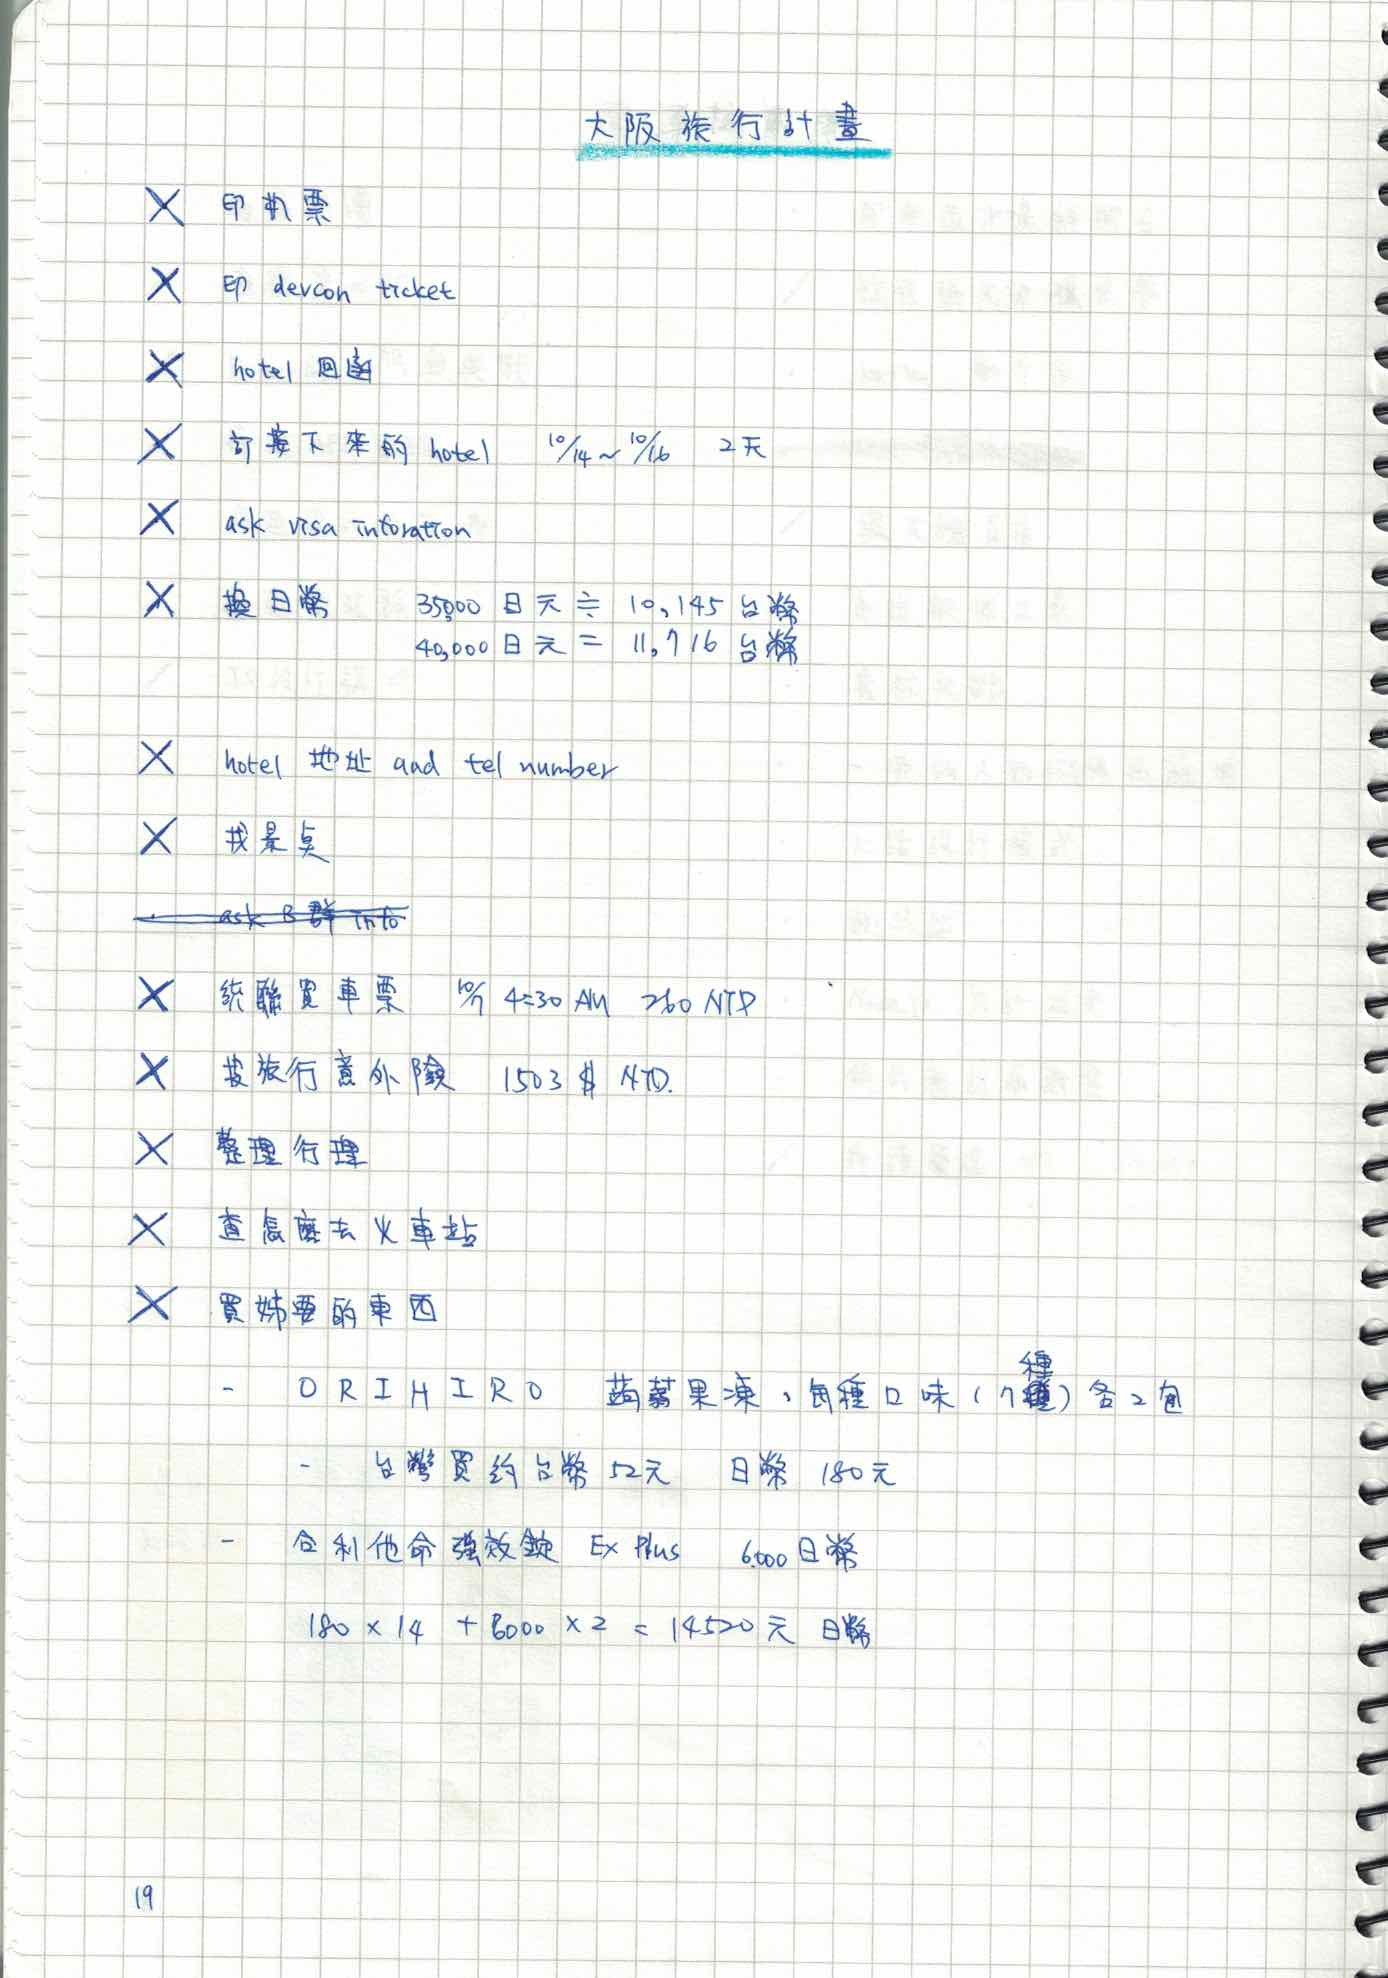 大阪旅行計畫
印机票
印 devcon ticket
hotel 回函
訂接下來的 hotel 10/14 ~ 10/16 2天
ask visa inforation
換日幣 35,000 日元 ≒ 10,145 台幣
40,000 日元 = 11,716 台幣
hotel 地址 and tel number
找景点
ask B群 info
統聯買車票 10/7 4:30 AM 260 NTD
投旅行意外險 1503 $ NTD.
整理行理
查怎麼去火車站
買姊要的東西
- ORIHIRO 蒟蒻果凍、每種口味(7種)各2包
- 台灣買約台幣 52元 日幣 180元
- 合利他命強效錠 Ex Plus 6,000 日幣
180 × 14 + 6000 × 2 = 14520元 日幣
19